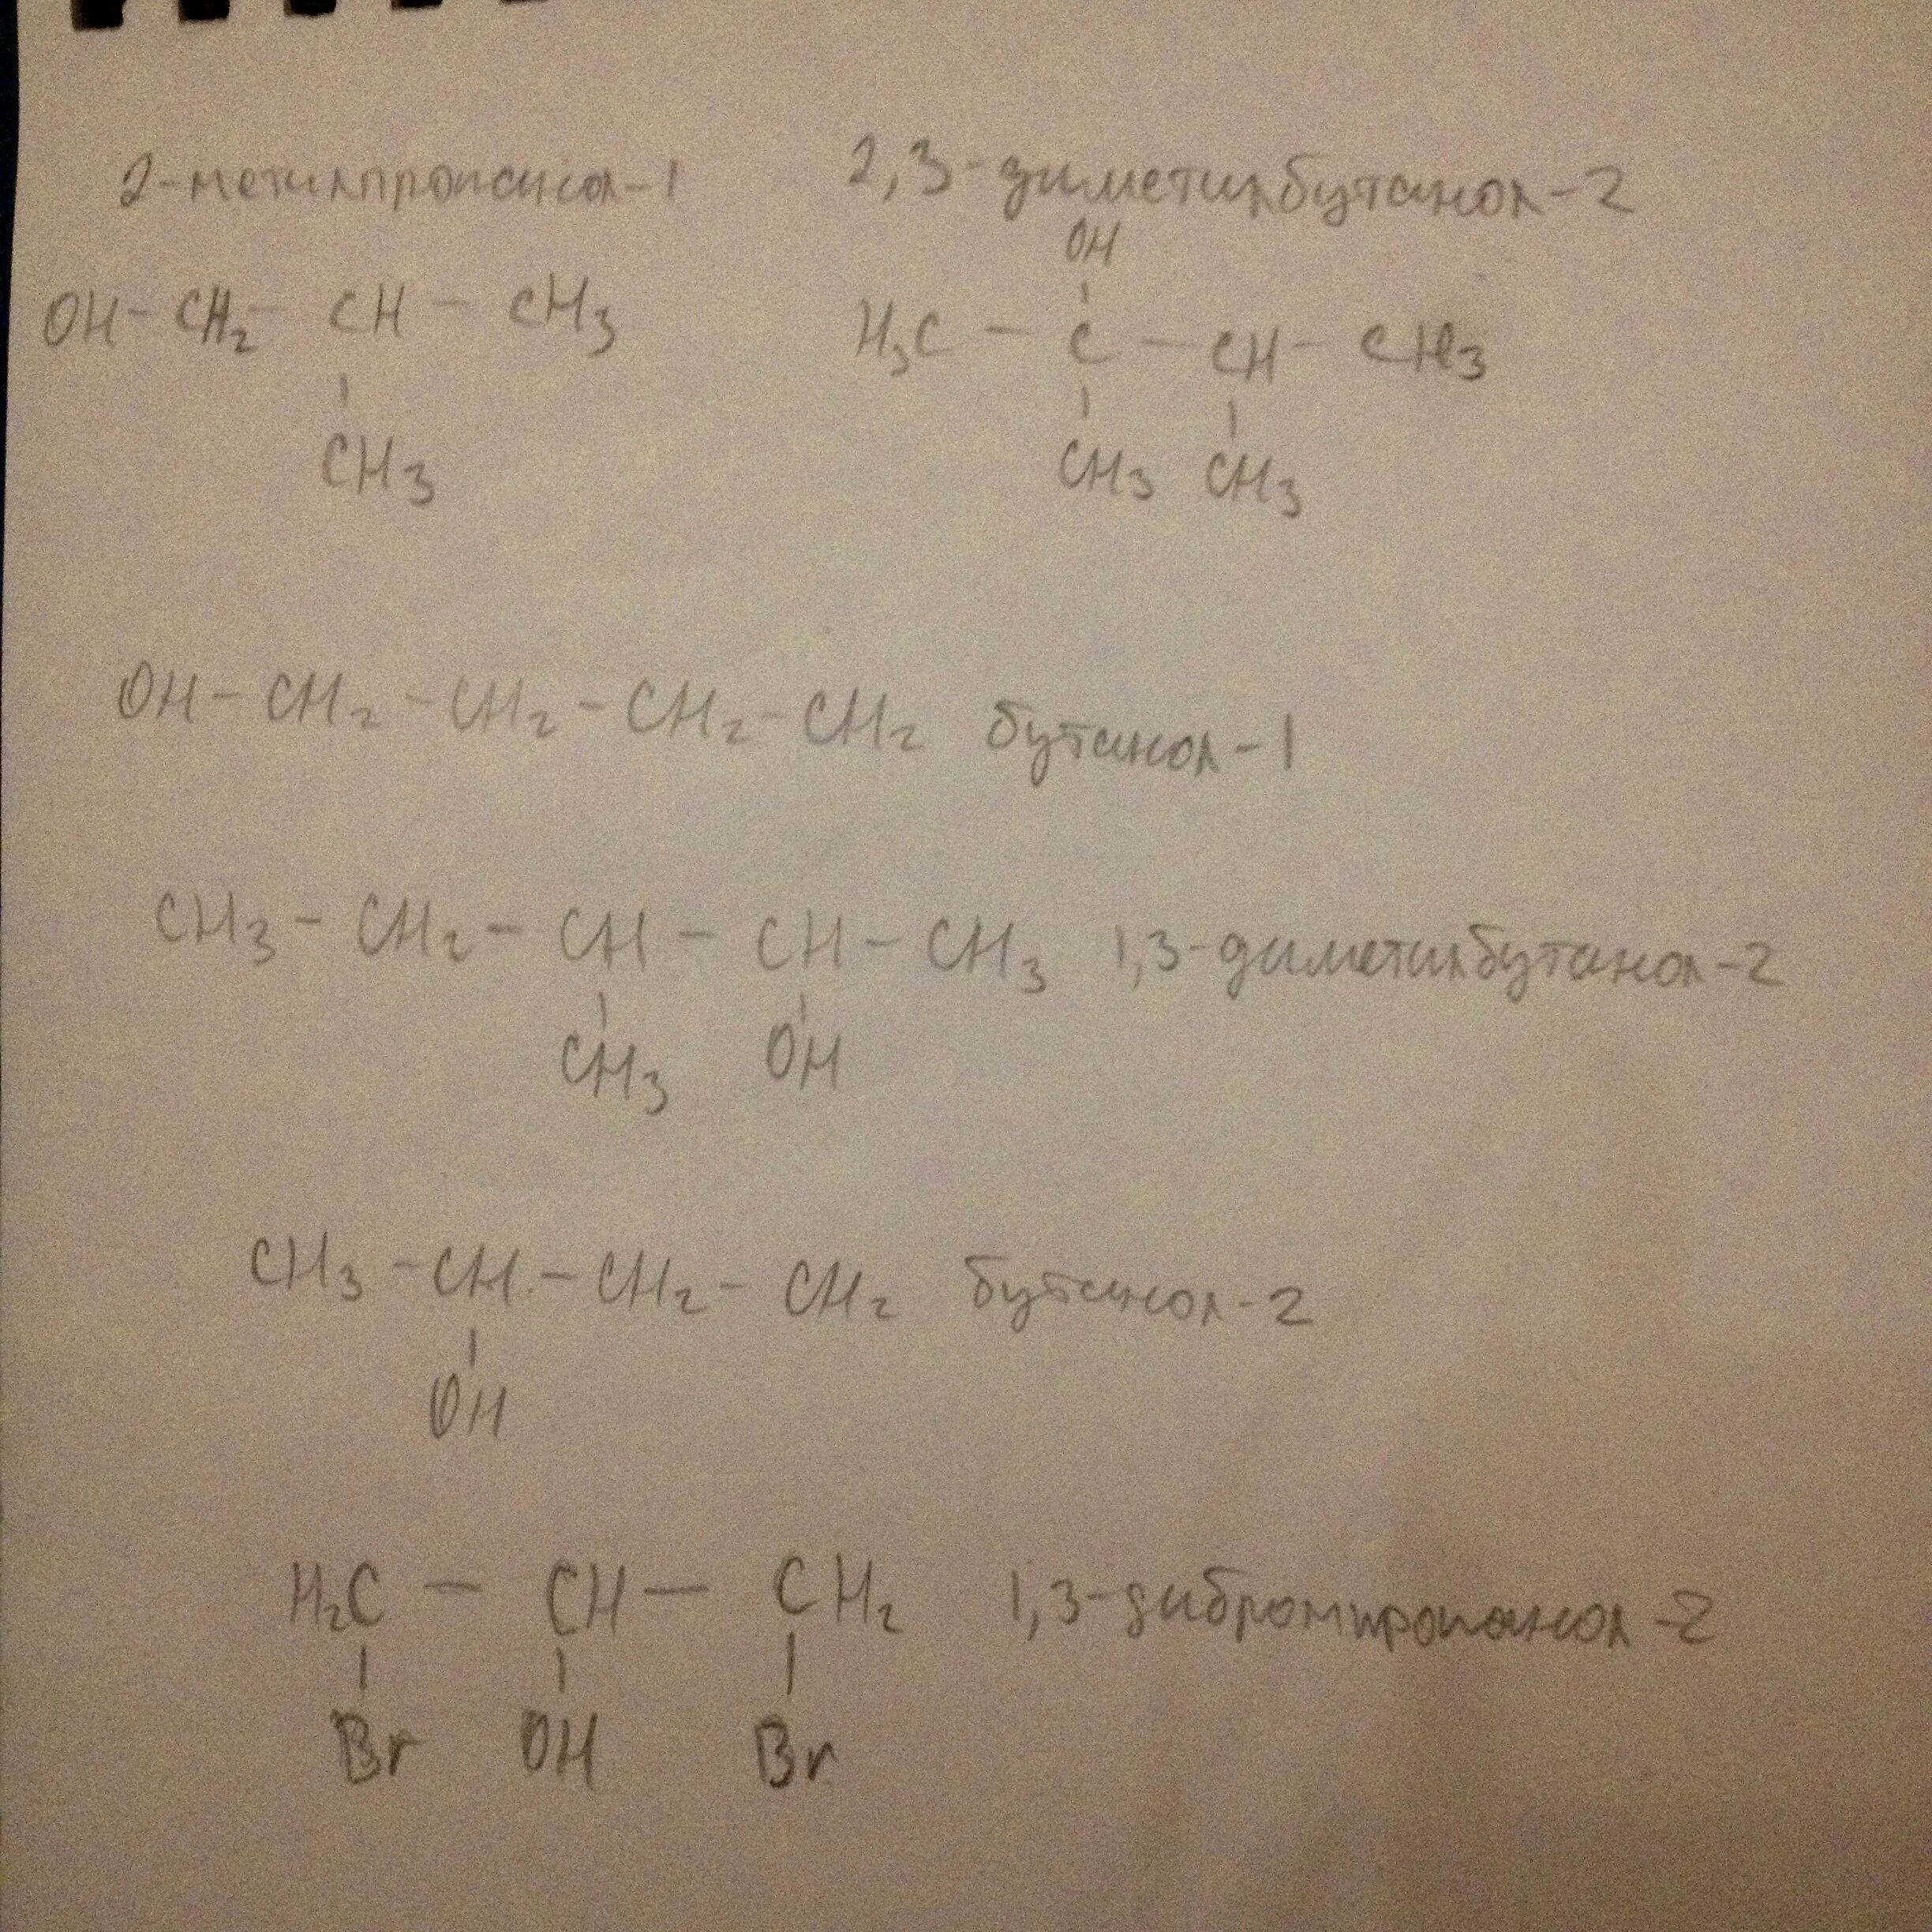 2-метилпропанол-1
OH - CH₂ - CH - CH₃
CH₃
2,3-диметилбутанол-2
OH
H₃C - C - CH - CH₃
CH₃ CH₃
OH - CH₂ - CH₂ - CH₂ - CH₂ бутанол-1
CH₃ - CH₂ - CH - CH - CH₃ 1,3-диметилбутанол-2
CH₃ OH
CH₃ - CH - CH₂ - CH₂ бутанол-2
OH
H₂C - CH - CH₂ 1,3-дибромпропанол-2
Br OH Br